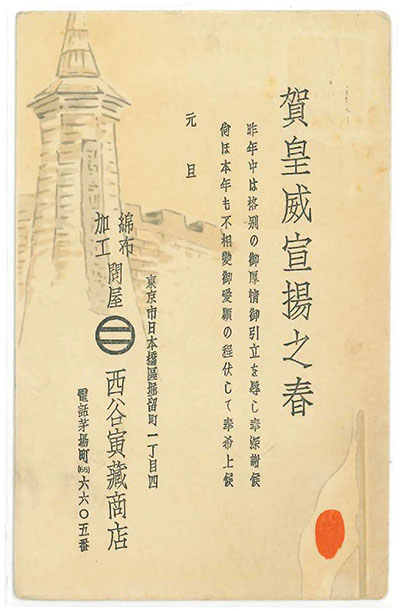 賀皇威宣揚之春
昨年中は格別の御厚情御引立を辱し奉深謝候
尚ほ本年も不相變御愛顧の程伏して奉希上候
元旦
東京市日本橋區堀留町一丁目四
綿布加工 問屋 西谷寅藏商店
電話茅場町(66)六六〇五番